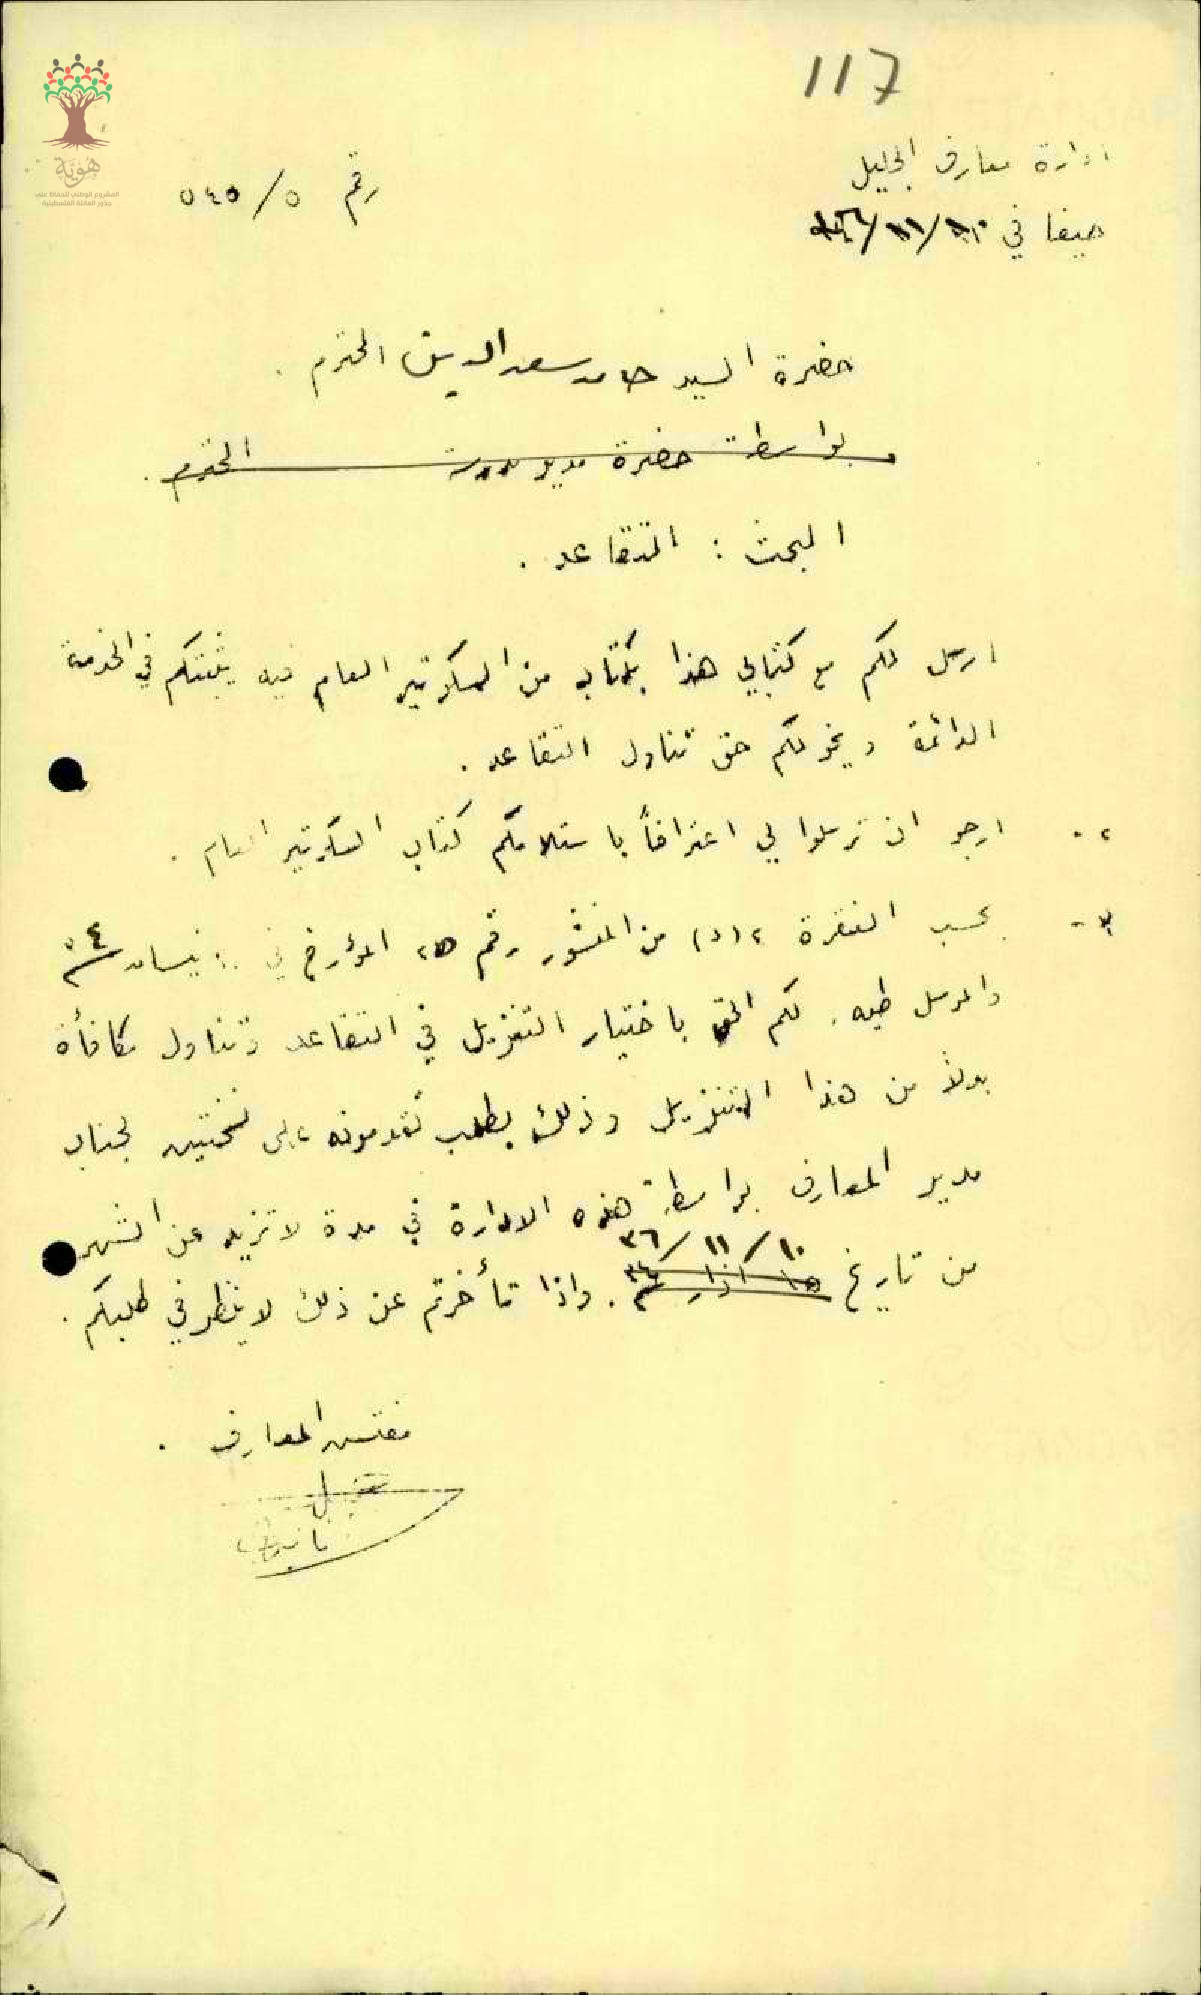 117
ادارة معارف الجليل
رقم ٥ / ٥٤٥
حيفا في ١٠/١١/٣٦
هُوِيَّة
المشروع الوطني للحفاظ على
جذور العائلة الفلسطينية
حضرة السيد حامد سعد الدين المحترم .
بواسطة حضرة مدير مدرسة المحترم .
البحث : التقاعد .
ارسل لكم مع كتابي هذا كتاب من السكرتير العام فيه يثبتكم في الخدمة
الدائمة ويخولكم حق تناول التقاعد .
٢ - ارجو ان ترسلوا لي اعترافاً باستلامكم كتاب السكرتير العام .
٣ - بحسب الفقرة ٢ (د) من المنشور رقم ٢٥ المؤرخ في نيسان
والمرسل طيه . لكم الحق باختيار التنزيل في التقاعد وتناول مكافأة
بدلاً من هذا التنزيل وذلك بطلب تقدمونه على نسختين لجناب
مدير المعارف بواسطة هذه الادارة في مدة لا تزيد عن الشهر
من تاريخ ١٠/١١/٣٦ ١٥ اذار ٣٤ . واذا تأخرتم عن ذلك لا ينظر في طلبكم .
مفتش المعارف .